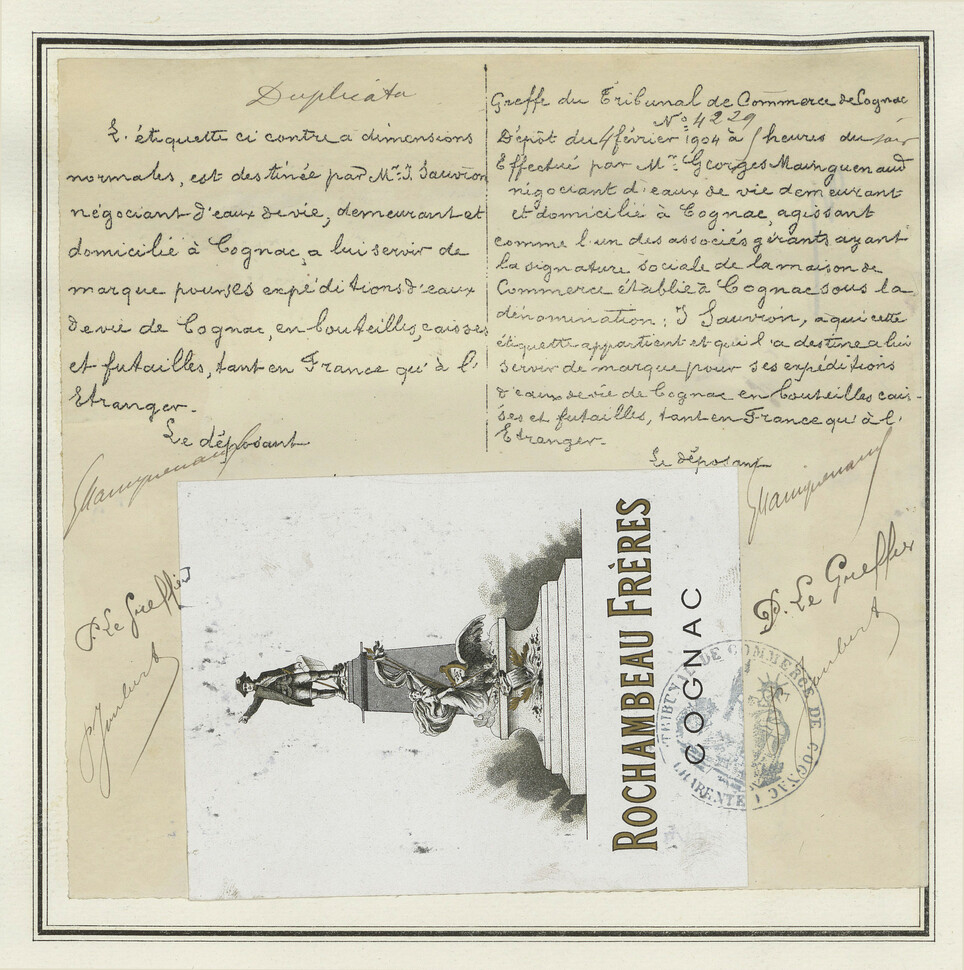 Duplicata
L'étiquette ci contre a dimensions
normales, est destinée par Mr. J. Sauvion
négociant d'eaux de vie, demeurant et
domicilié à Cognac, a lui servir de
marque pour ses expéditions d'eaux
de vie de Cognac, en bouteilles, caisses
et futailles, tant en France qu'à l'
Etranger.
Le déposant
Mainguenaud
P. Le Greffier
P. Joubert
Greffe du Tribunal de Commerce de Cognac
No. 4229
Dépôt du 4 février 1904 à 1 heures du soir
Effectué par Mr. Georges Mainguenaud
négociant d'eaux de vie demeurant
et domicilié à Cognac, agissant
comme l'un des associés gérants ayant
la signature sociale de la maison de
Commerce établie à Cognac sous la
dénomination: J Sauvion, a qui cette
étiquette appartient et qui l'a destine a lui
servir de marque pour ses expéditions
d'eaux de vie de Cognac en bouteilles cais-
ses et futailles, tant en France qu'à l'
Etranger.
Le déposant
Mainguenaud
P. Le Greffier
Joubert
ROCHAMBEAU FRÈRES
COGNAC
TRIBUNAL DE COMMERCE DE COGNAC
CHARENTE